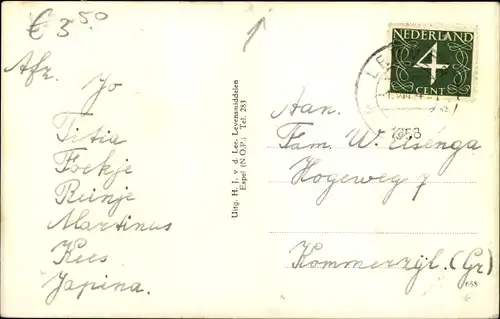 € 3.50
Afz.
Jo
Titia
Foekje
Reinje
Martinus
Kees
Japina.
Uitg. H. J. v. d. Lee, Levensmiddelen
Espel (N.O.P.) Tel. 283
NEDERLAND
4
CENT
1958
Aan.
Fam. W. Elsenga
Hogeweg 9
Kommerzijl. (Gr)
658